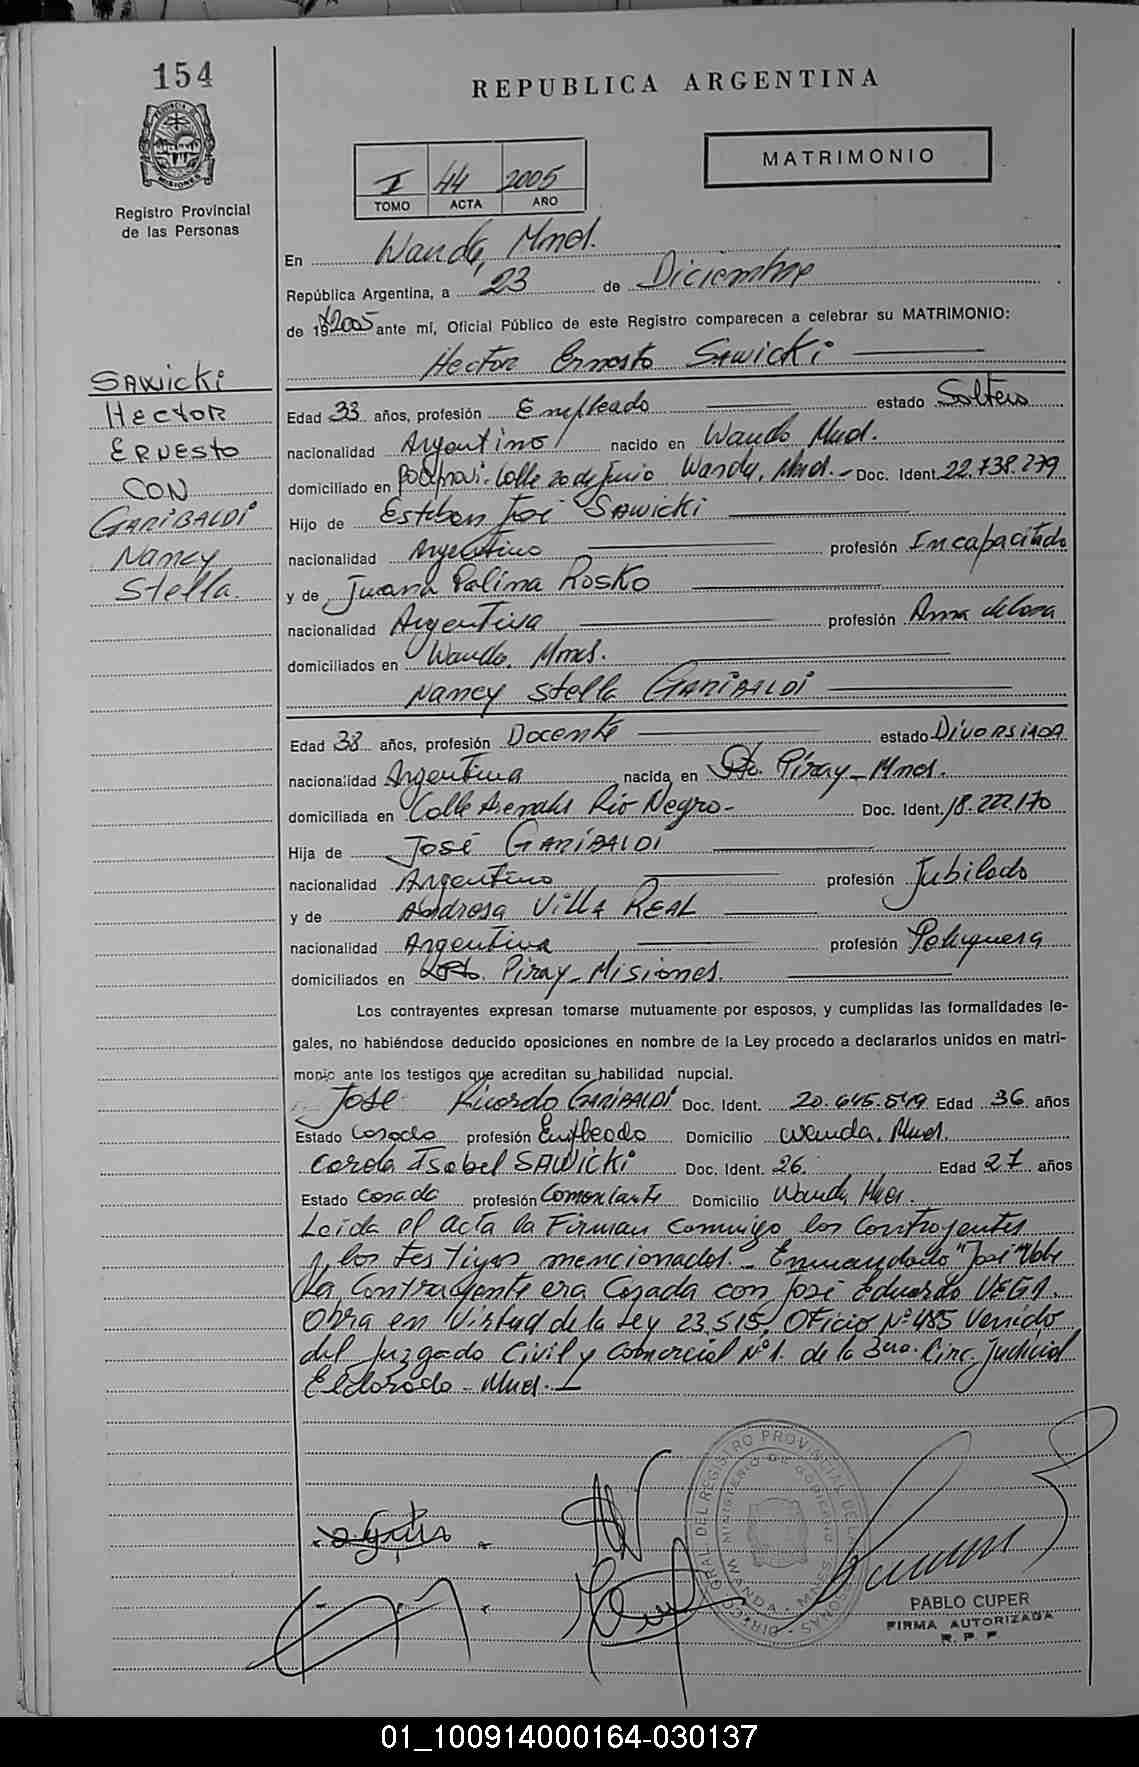 154
REPUBLICA ARGENTINA
MATRIMONIO
I 44 2005
TOMO ACTA AÑO
Registro Provincial
de las Personas
En Wanda, Mnes.
República Argentina, a 23 de Diciembre
de 19 2005 ante mí, Oficial Público de este Registro comparecen a celebrar su MATRIMONIO:
Hector Ernesto SAWICKi
SAWICKi
HECTOR
ERNESTO
CON
GARIBALDI
Nancy
Stella.
Edad 33 años, profesión Empleado estado Soltero
nacionalidad Argentino nacido en Wanda Mnes.
domiciliado en calle 20 de Junio Wanda, Mnes.- Doc. Ident. 22.738.279
Hijo de Esteban José SAWICKi
nacionalidad Argentino profesión Incapacitado
y de Juana Palima ROSKO
nacionalidad Argentina profesión Ama de Casa
domiciliados en Wanda, Mnes.
Nancy Stella GARIBALDI
Edad 38 años, profesión Docente estado DIVORSIADA
nacionalidad Argentina nacida en Pto. Piray - Mnes.
domiciliada en Calle Río Negro- Doc. Ident. 18.222.170
Hija de José GARIBALDI
nacionalidad Argentino profesión Jubilado
y de VILLA REAL
nacionalidad Argentina profesión Peluquera
domiciliados en Pto. Piray - Misiones.
Los contrayentes expresan tomarse mutuamente por esposos, y cumplidas las formalidades le-
gales, no habiéndose deducido oposiciones en nombre de la Ley procedo a declararlos unidos en matri-
monio ante los testigos que acreditan su habilidad nupcial.
José Ricardo GARIBALDI Doc. Ident. 20.645.549 Edad 36 años
Estado Casado profesión Empleado Domicilio Wanda, Mnes.
Carola Isabel SAWICKi Doc. Ident. 26. Edad 27 años
Estado Casada profesión Comerciante Domicilio Wanda, Mnes.
Leida el acta la Firman conmigo los Contrayentes
y los testigos mencionados.- Enmendado "José" Vale
La Contrayente era Casada con José Eduardo VEGA.
Obra en Virtud de la Ley 23.515, Oficio Nº 485 Venido
del Juzgado Civil y Comercial Nº 1. de la 3era. Circ. Judicial
Eldorado - Mnes.
PABLO CUPER
FIRMA AUTORIZADA
R. P. P.
01_100914000164-030137